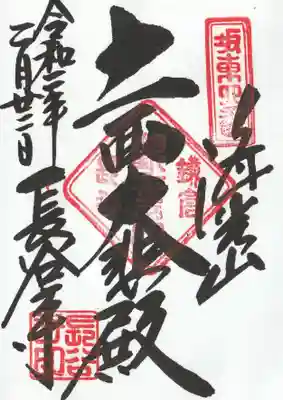 坂東四番
海光山
十一面大悲殿
長谷寺
令和二年
二月廿二日